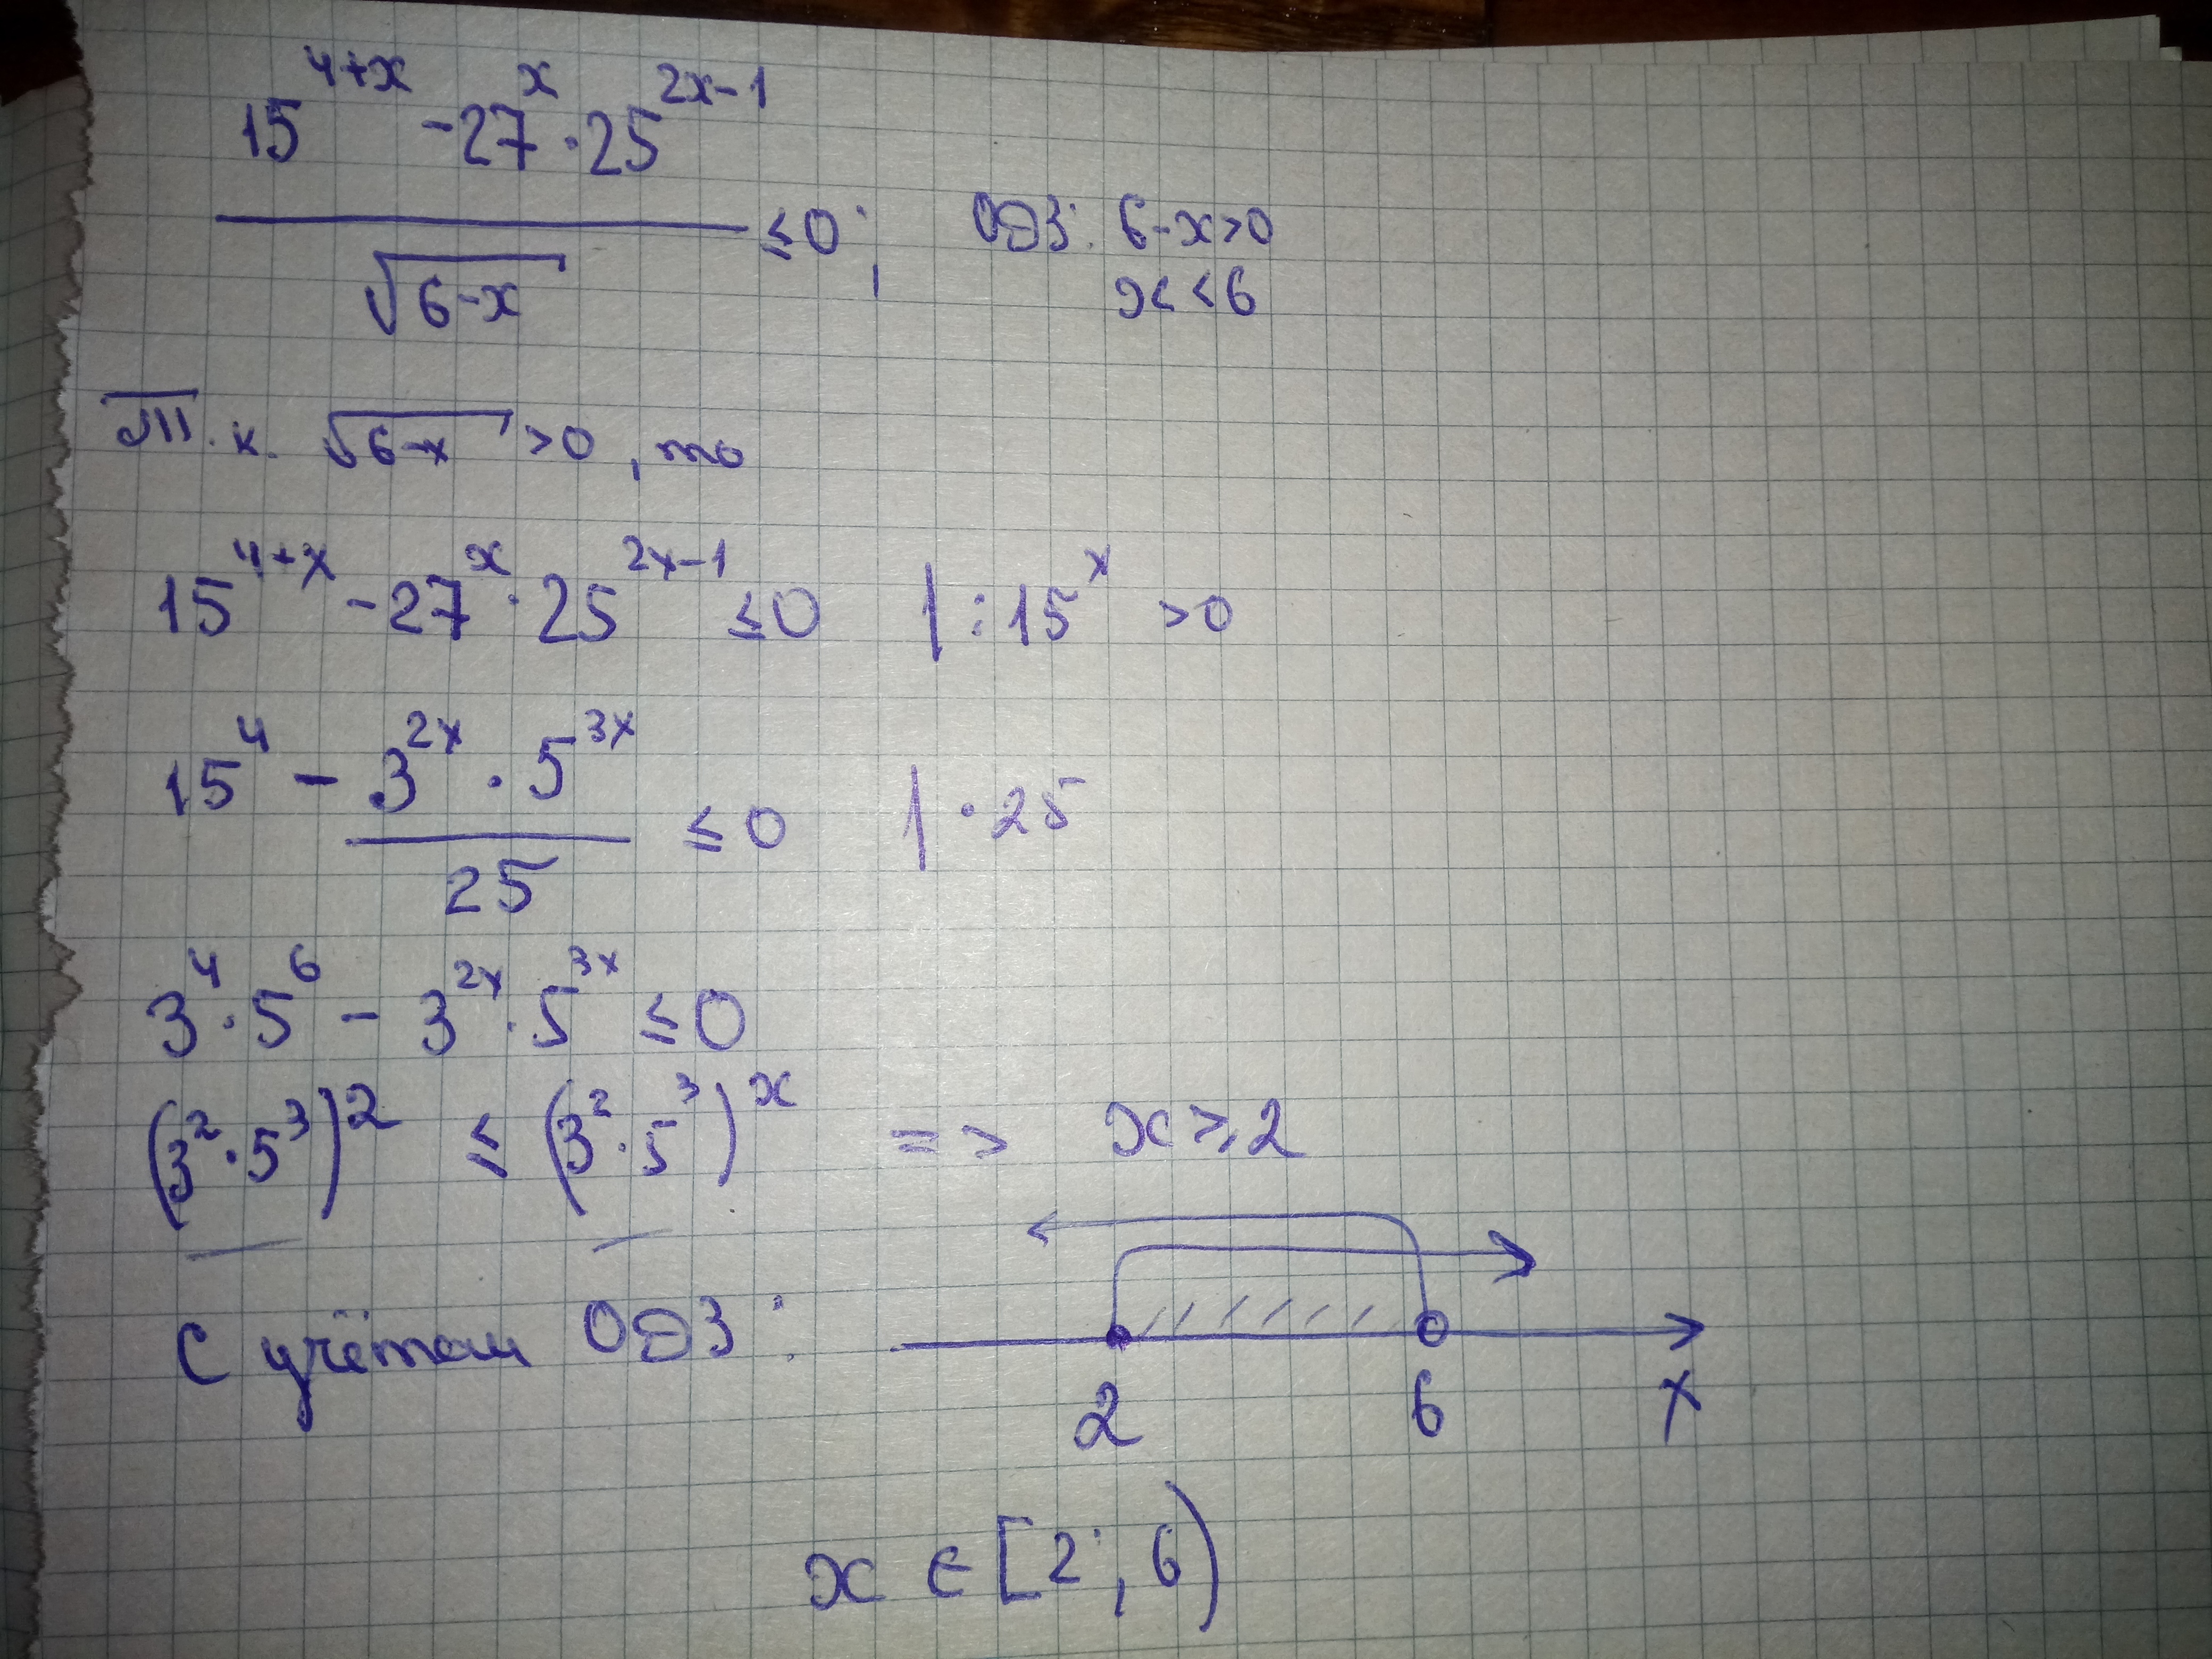 15^{4+x} - 27^x · 25^{2x-1}
/ √(6-x) ≤ 0; ОДЗ: 6-x>0
x<6
Т.к. √(6-x) >0, то
15^{4+x} - 27^x · 25^{2x-1} ≤ 0 | : 15^x >0
15^4 - 3^{2x} · 5^{3x} / 25 ≤ 0 | · 25
3^4 · 5^6 - 3^{2x} · 5^{3x} ≤ 0
(3^2 · 5^3)^2 ≤ (3^2 · 5^3)^x => x ≥ 2
С учётом ОДЗ:
2 6 x
x ∈ [2; 6)